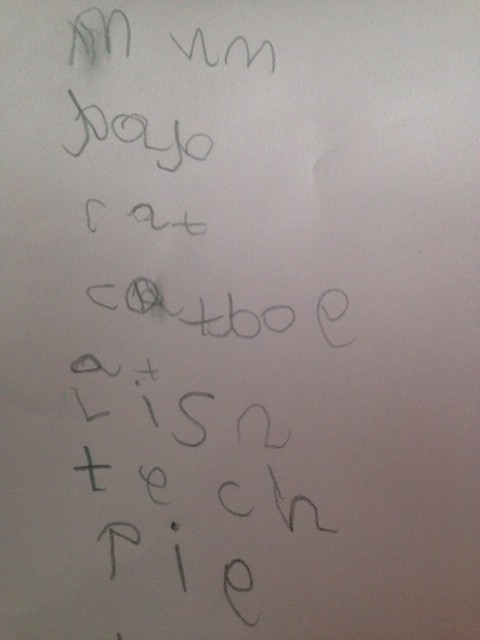 Mum
pap
rat
catboe
at
Lisn
tech
Pie